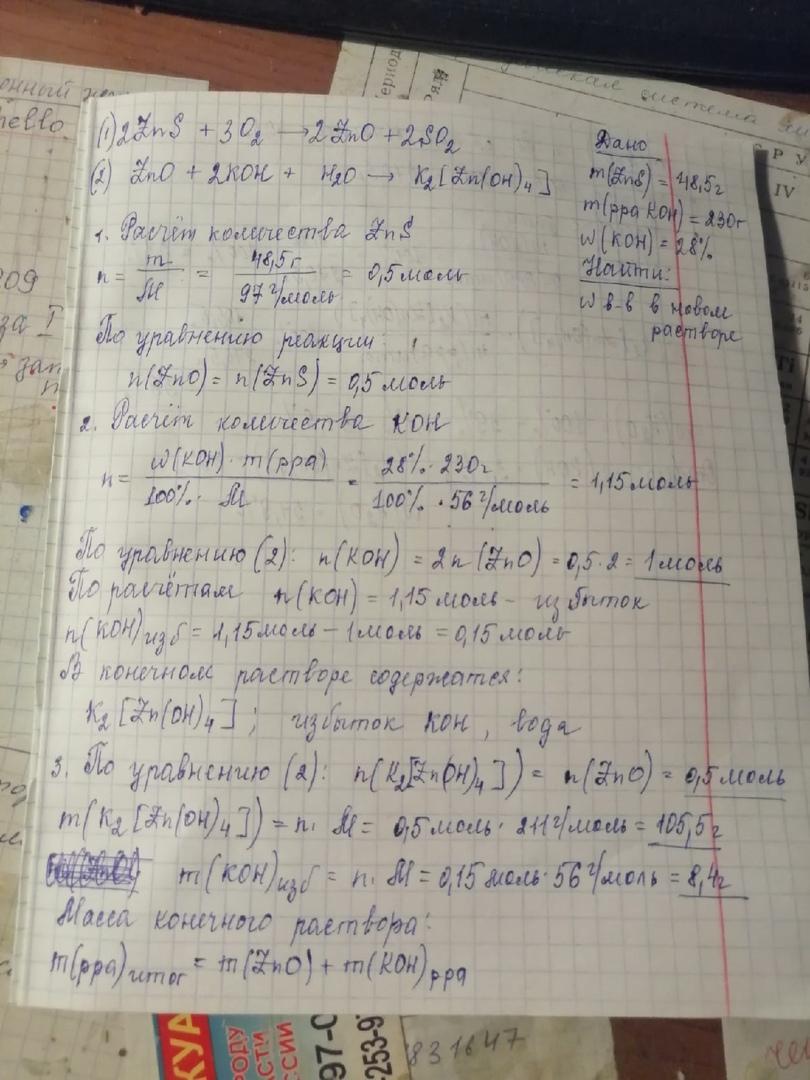 (1) 2ZnS + 3O₂ → 2ZnO + 2SO₂
(2) ZnO + 2KOH + H₂O → K₂[Zn(OH)₄]
Дано
m(ZnS) = 48,5г
m(рра KOH) = 230г
w(KOH) = 28%
Найти:
w в-в в новом
растворе
1. Расчёт количества ZnS
n = m/M = 48,5г/97 г/моль = 0,5 моль
По уравнению реакции:
n(ZnO) = n(ZnS) = 0,5 моль
2. Расчёт количества KOH
n = w(KOH) · m(рра)/100% · M = 28% · 230г/100% · 56 г/моль = 1,15 моль
По уравнению (2): n(KOH) = 2n(ZnO) = 0,5·2 = 1 моль
По расчётам n(KOH) = 1,15 моль – избыток
n(KOH)изб = 1,15 моль – 1 моль = 0,15 моль
В конечном растворе содержатся:
K₂[Zn(OH)₄]; избыток KOH, вода
3. По уравнению (2): n(K₂[Zn(OH)₄]) = n(ZnO) = 0,5 моль
m(K₂[Zn(OH)₄]) = n · M = 0,5 моль · 211 г/моль = 105,5г
m(KOH)изб = n · M = 0,15 моль · 56 г/моль = 8,4г
Масса конечного раствора:
m(рра)итог = m(ZnO) + m(KOH)рра
Ряд
система
Р У
IV
за I
КУА
РОДУ
АСТИ
ССИИ
831647